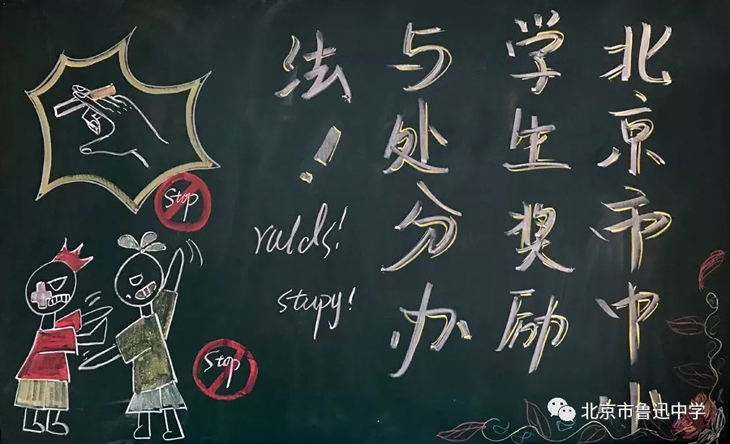 北京市中小
学生奖励
与处分办
法!
rulds!
stupy!
Stop
Stop
北京市鲁迅中学